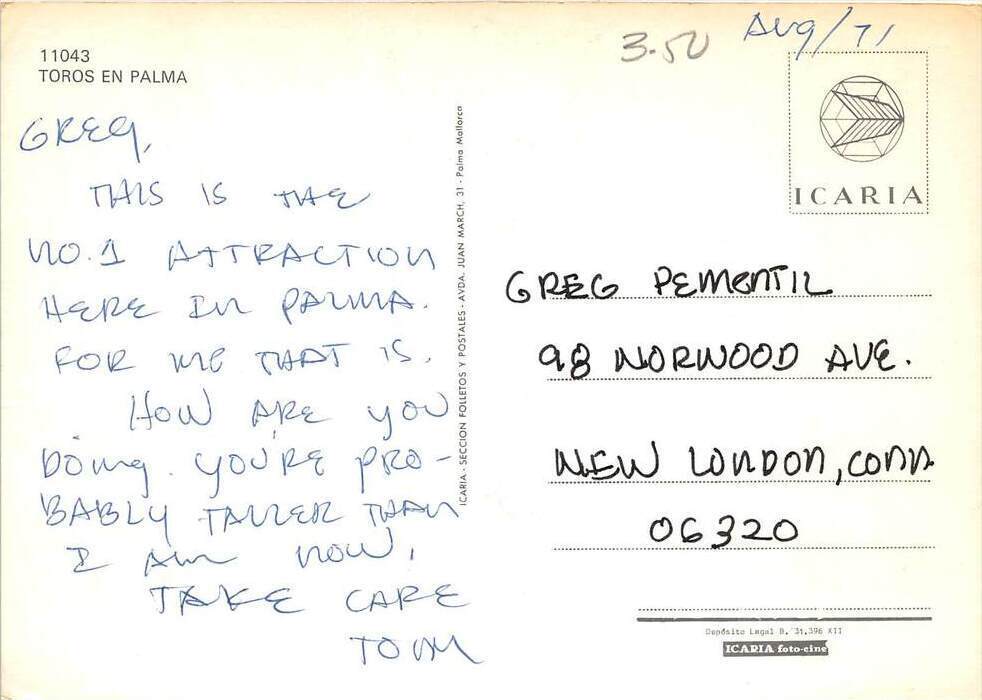 11043
TOROS EN PALMA
3.50
Aug/71
GREG,
THIS IS THE
NO.1 ATTRACTION
HERE IN PALMA.
FOR ME THAT IS.
HOW ARE YOU
DOING. YOU'RE PRO-
BABLY TALLER THAN
I AM NOW.
TAKE CARE
TOM
ICARIA - SECCION FOLLETOS Y POSTALES - AVDA. JUAN MARCH, 31 - Palma Mallorca
ICARIA
GREG PEMENTIL
98 NORWOOD AVE.
NEW LONDON, CONN
06320
Depósito Legal B. 31.396 XII
ICARIA foto-cine